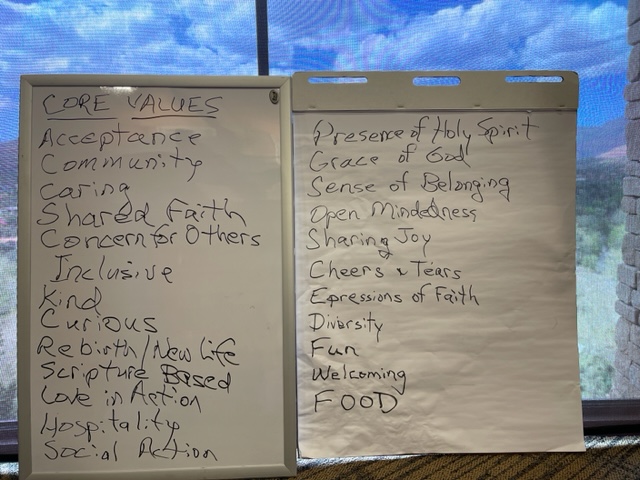 CORE VALUES
Acceptance
Community
Caring
Shared Faith
Concern for Others
Inclusive
Kind
Curious
Rebirth/New Life
Scripture Based
Love in Action
Hospitality
Social Action
Presence of Holy Spirit
Grace of God
Sense of Belonging
Open Mindedness
Sharing Joy
Cheers & Tears
Epressions of Faith
Diversity
Fun
Welcoming
FOOD